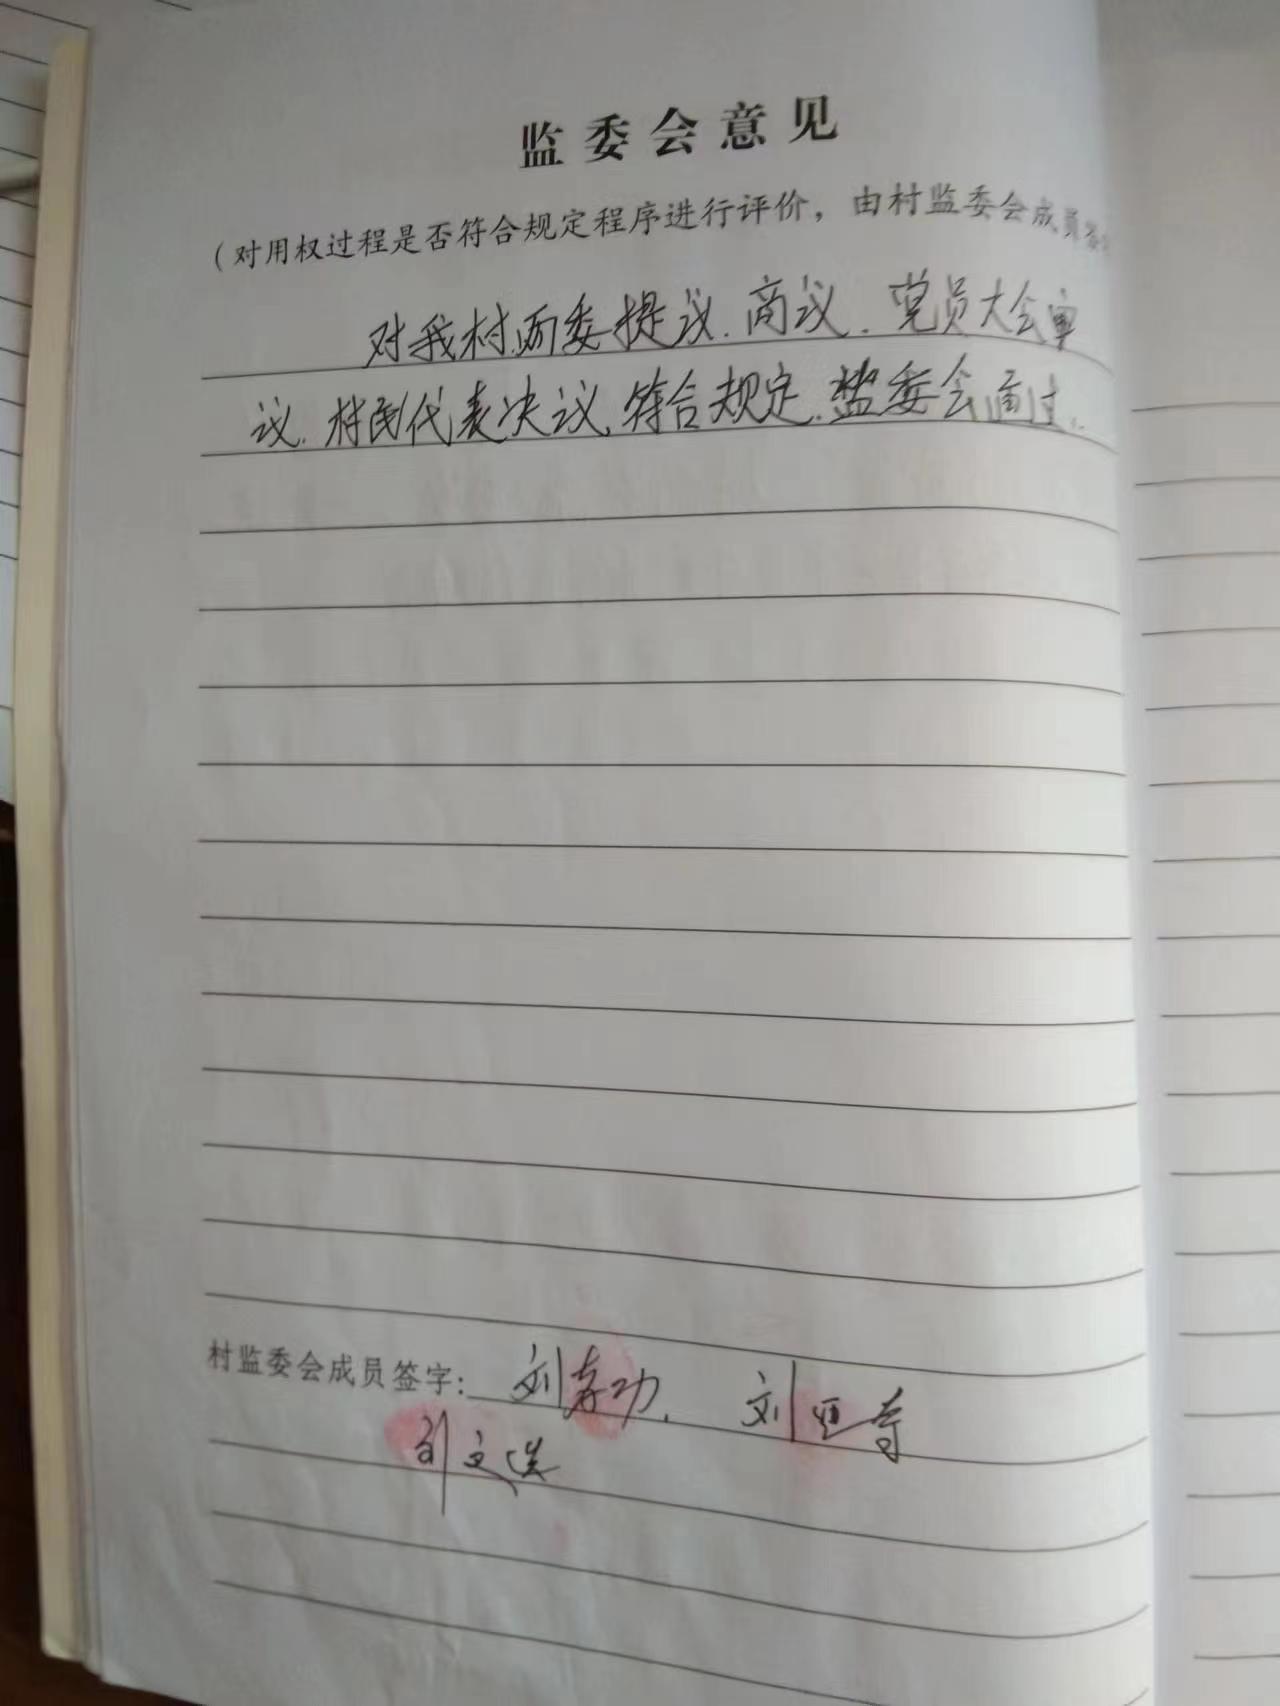 监委会意见
（对用权过程是否符合规定程序进行评价，由村监委会成员签
对我村两委提议、商议、党员大会审
议、村民代表决议、符合规定、监委会通过、
村监委会成员签字：刘孝功、刘
刘文